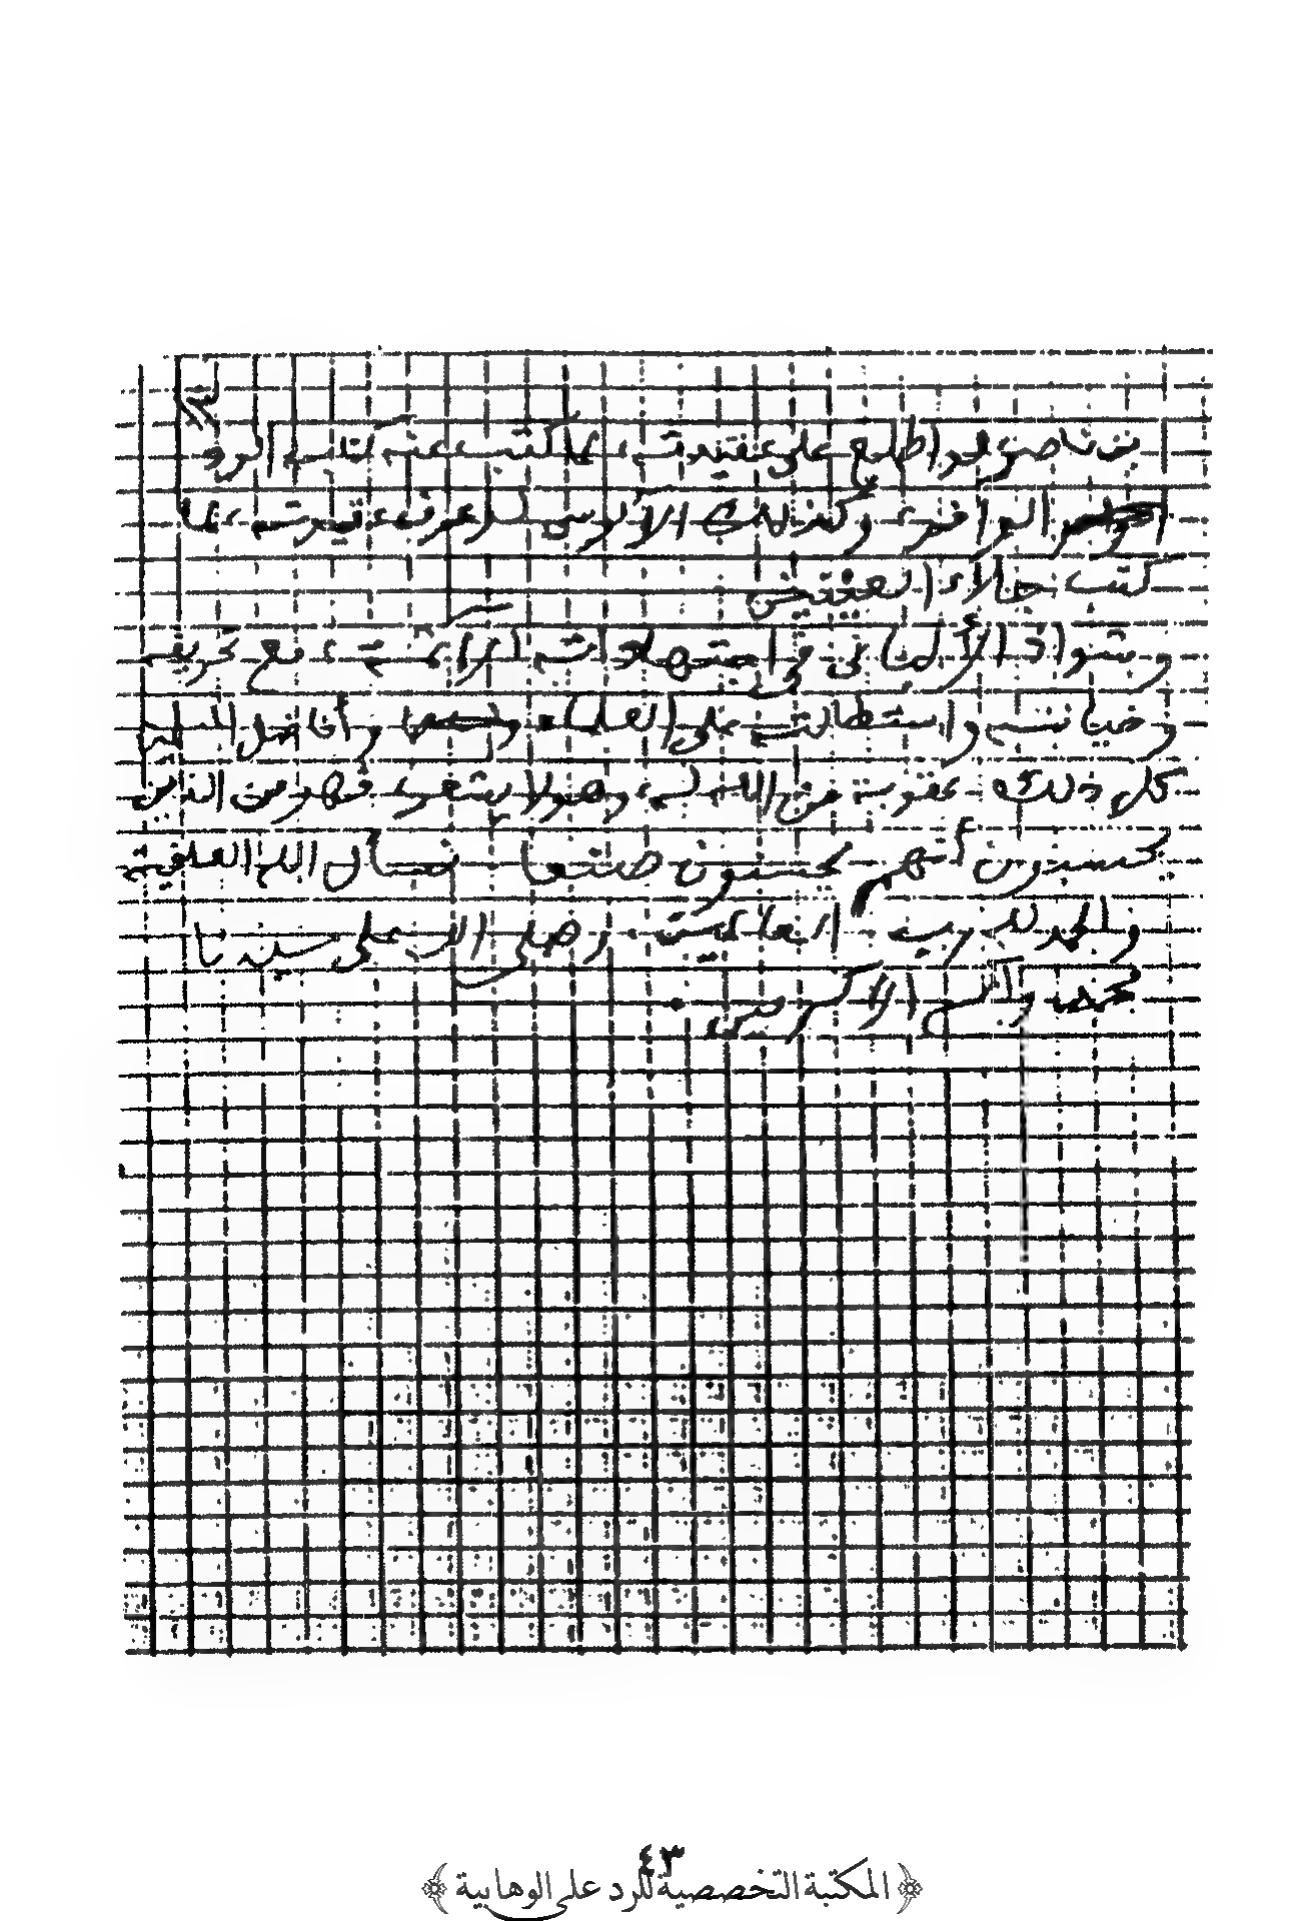 بن ناصر لو اطلع على عقيدته، لما كتب عنه كتابه الرد
الوافر، وكذلك الألوسي لو عرف عقيدته، لما
كتب جلاء العينين
وشواذ الألباني في اجتهاداته الآثمة، مع تحريفه
وخيانته واستطالته على العلماء وأفاضل المسلمين
كل ذلك عقوبة من الله له، وهو لا يشعر، فهو من الذين
يحسبون أنهم يحسنون صنعا نسأل الله العافية
والحمد لله رب العالمين وصلى الله على سيدنا
محمد وآله الأكرمين.
٤٣
المكتبة التخصصية للرد على الوهابية